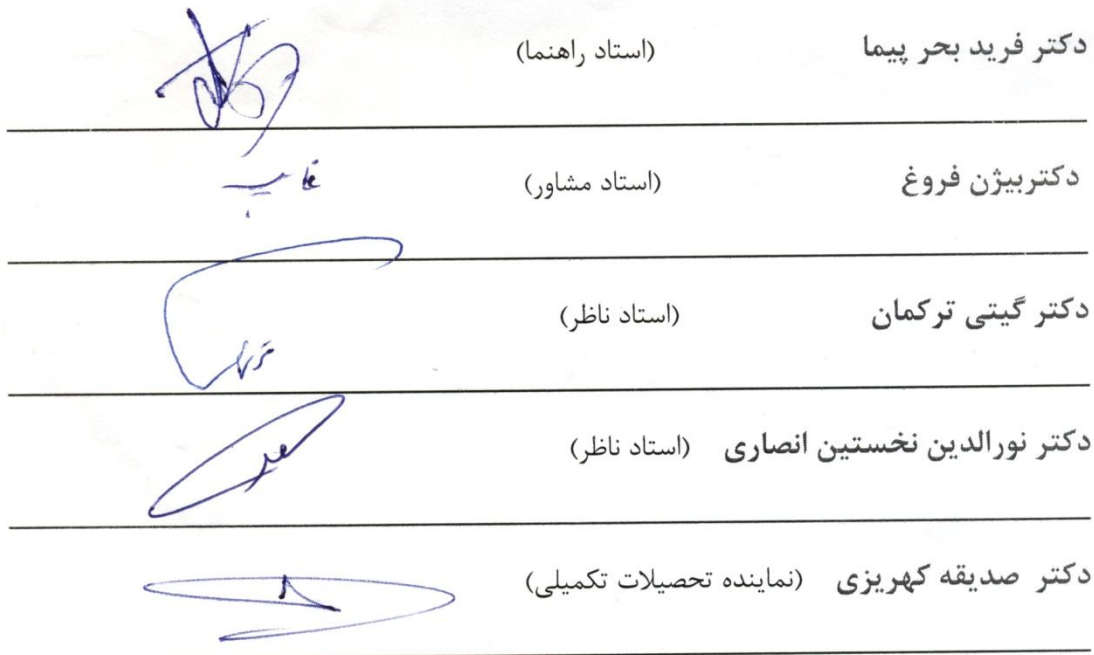 دکتر فرید بحر پیما (استاد راهنما)
دکتربیژن فروغ (استاد مشاور) غایب
دکتر گیتی ترکمان (استاد ناظر)
دکتر نورالدین نخستین انصاری (استاد ناظر)
دکتر صدیقه کهریزی (نماینده تحصیلات تکمیلی)